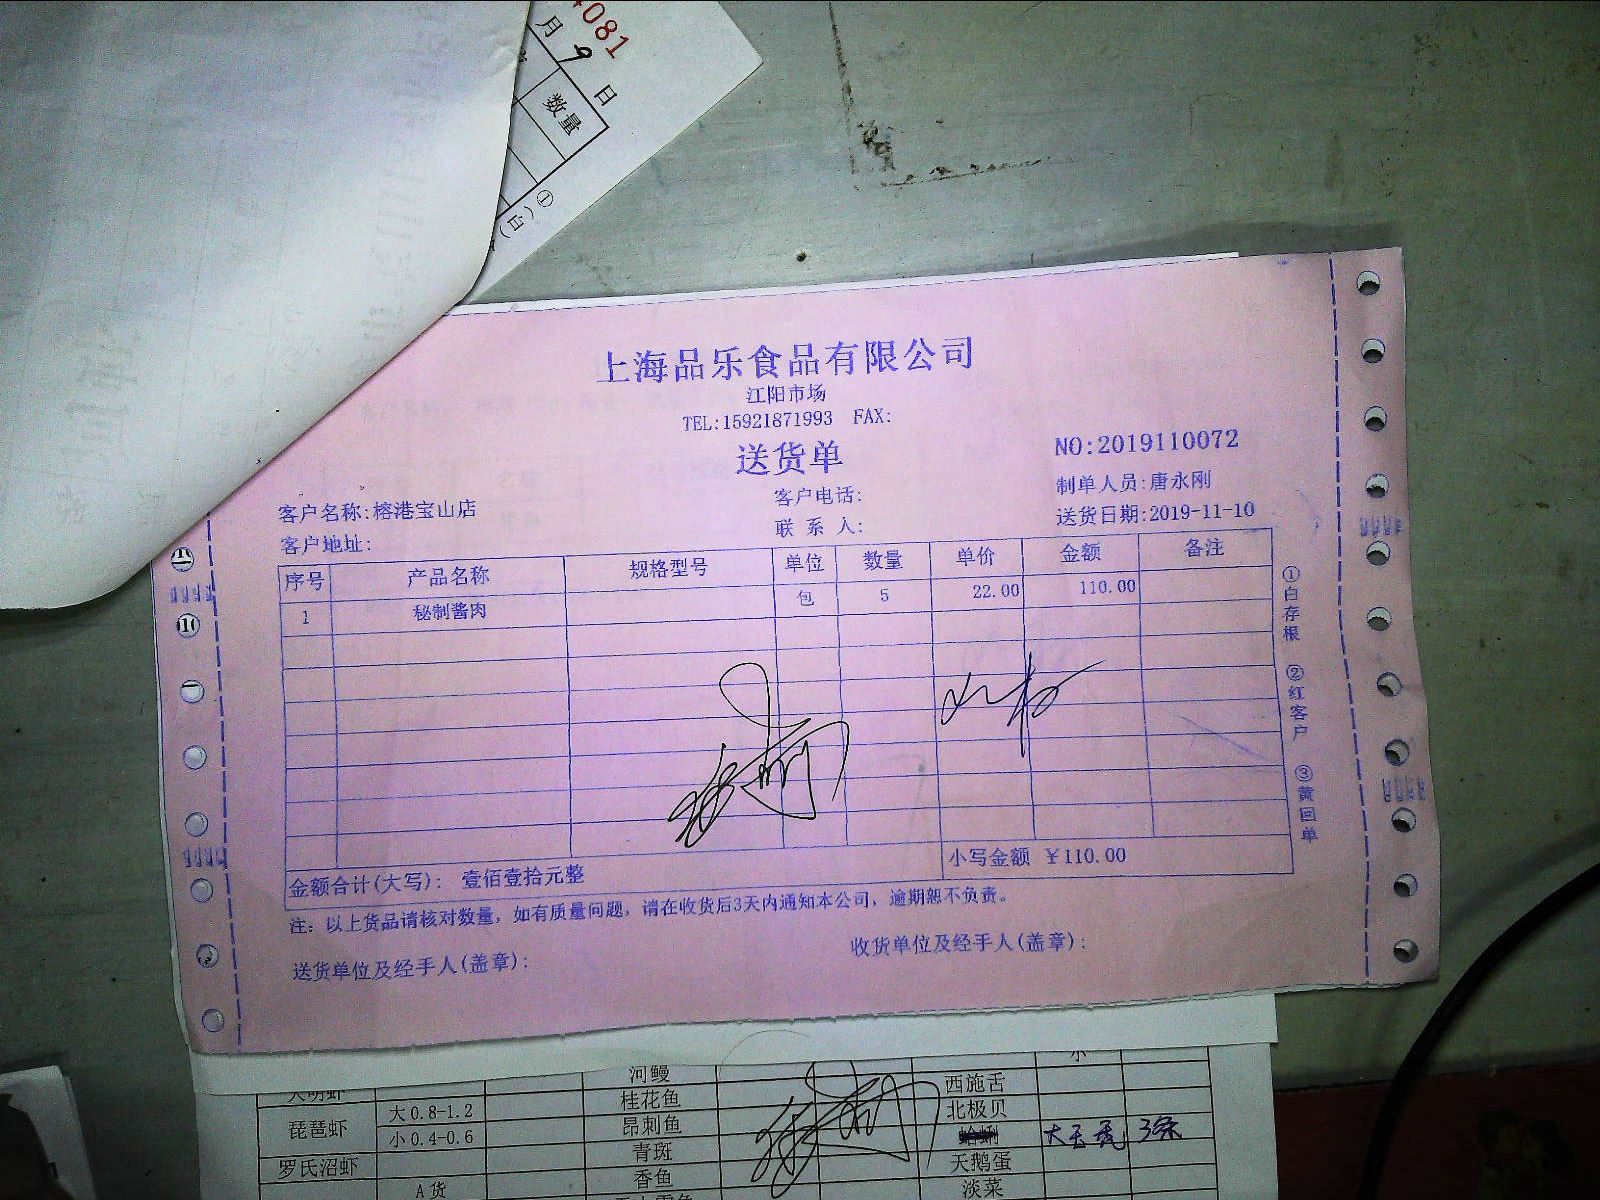 4081
月9日
数量
①(白)
上海品乐食品有限公司
江阳市场
TEL:15921871993 FAX:
送货单
NO:2019110072
客户名称:榕港宝山店
客户电话:
制单人员:唐永刚
客户地址:
联系人:
送货日期:2019-11-10
序号 产品名称 规格型号 单位 数量 单价 金额 备注
1 秘制酱肉 包 5 22.00 110.00
①白存根 ②红客户 ③黄回单
金额合计(大写): 壹佰壹拾元整 小写金额 ¥110.00
注: 以上货品请核对数量, 如有质量问题, 请在收货后3天内通知本公司, 逾期恕不负责。
送货单位及经手人(盖章): 收货单位及经手人(盖章):
大明虾 河鳗 西施舌 小
琵琶虾 大0.8-1.2 桂花鱼 北极贝
小0.4-0.6 昂刺鱼
罗氏沼虾 青斑 天鹅蛋
A货 香鱼 淡菜